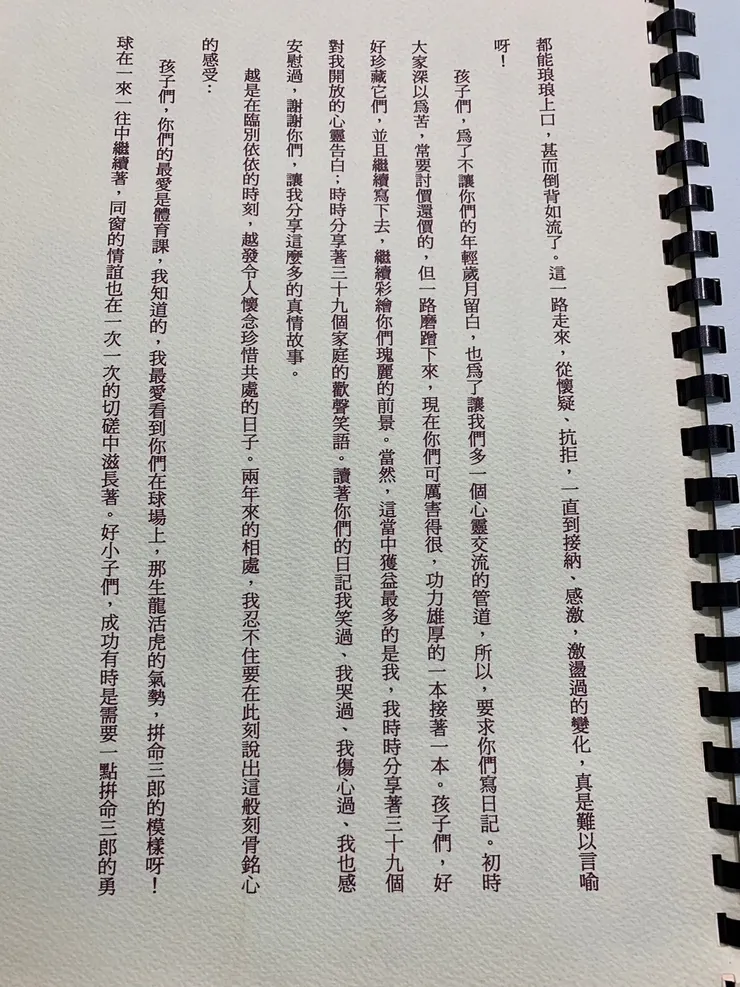 都能琅琅上口，甚而倒背如流了。這一路走來，從懷疑、抗拒，一直到接納、感激，激盪過的變化，真是難以言喻
呀！
孩子們，為了不讓你們的年輕歲月留白，也為了讓我們多一個心靈交流的管道，所以，要求你們寫日記。初時
大家深以為苦，常要討價還價的，但一路磨蹭下來，現在你們可厲害得很，功力雄厚的一本接著一本。孩子們，好
好珍藏它們，並且繼續寫下去，繼續彩繪你們瑰麗的前景。當然，這當中獲益最多的是我，我時時分享著三十九個
對我開放的心靈告白；時時分享著三十九個家庭的歡聲笑語。讀著你們的日記我笑過、我哭過、我傷心過、我也感
安慰過，謝謝你們，讓我分享這麼多的真情故事。
越是在臨別依依的時刻，越發令人懷念珍惜共處的日子。兩年來的相處，我忍不住要在此刻說出這般刻骨銘心
的感受：
孩子們，你們的最愛是體育課，我知道的，我最愛看到你們在球場上，那生龍活虎的氣勢，拚命三郎的模樣呀！
球在一來一往中繼續著，同窗的情誼也在一次一次的切磋中滋長著。好小子們，成功有時是需要一點拚命三郎的勇